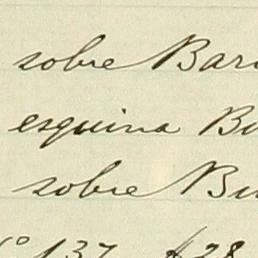 sobre Bar
esquina Bu
sobre Bu
137 $ 28